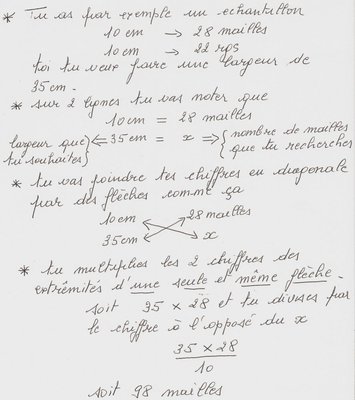 * Tu as par exemple un echantillon
10 cm → 28 mailles
10 cm → 22 rgs
toi tu veux faire une largeur de
35 cm.
* sur 2 lignes tu vas noter que
10 cm = 28 mailles
largeur que tu souhaites } ⇐ 35 cm = x ⇒ { nombre de mailles que tu recherches
* tu vas joindre tes chiffres en diagonale
par des flèches comme ça
10 cm 28 mailles
35 cm x
* tu multiplies les 2 chiffres des
extrêmités d'une seule et même flèche.
soit 35 × 28 et tu divises par
le chiffre à l'opposé du x
35 × 28
10
soit 98 mailles